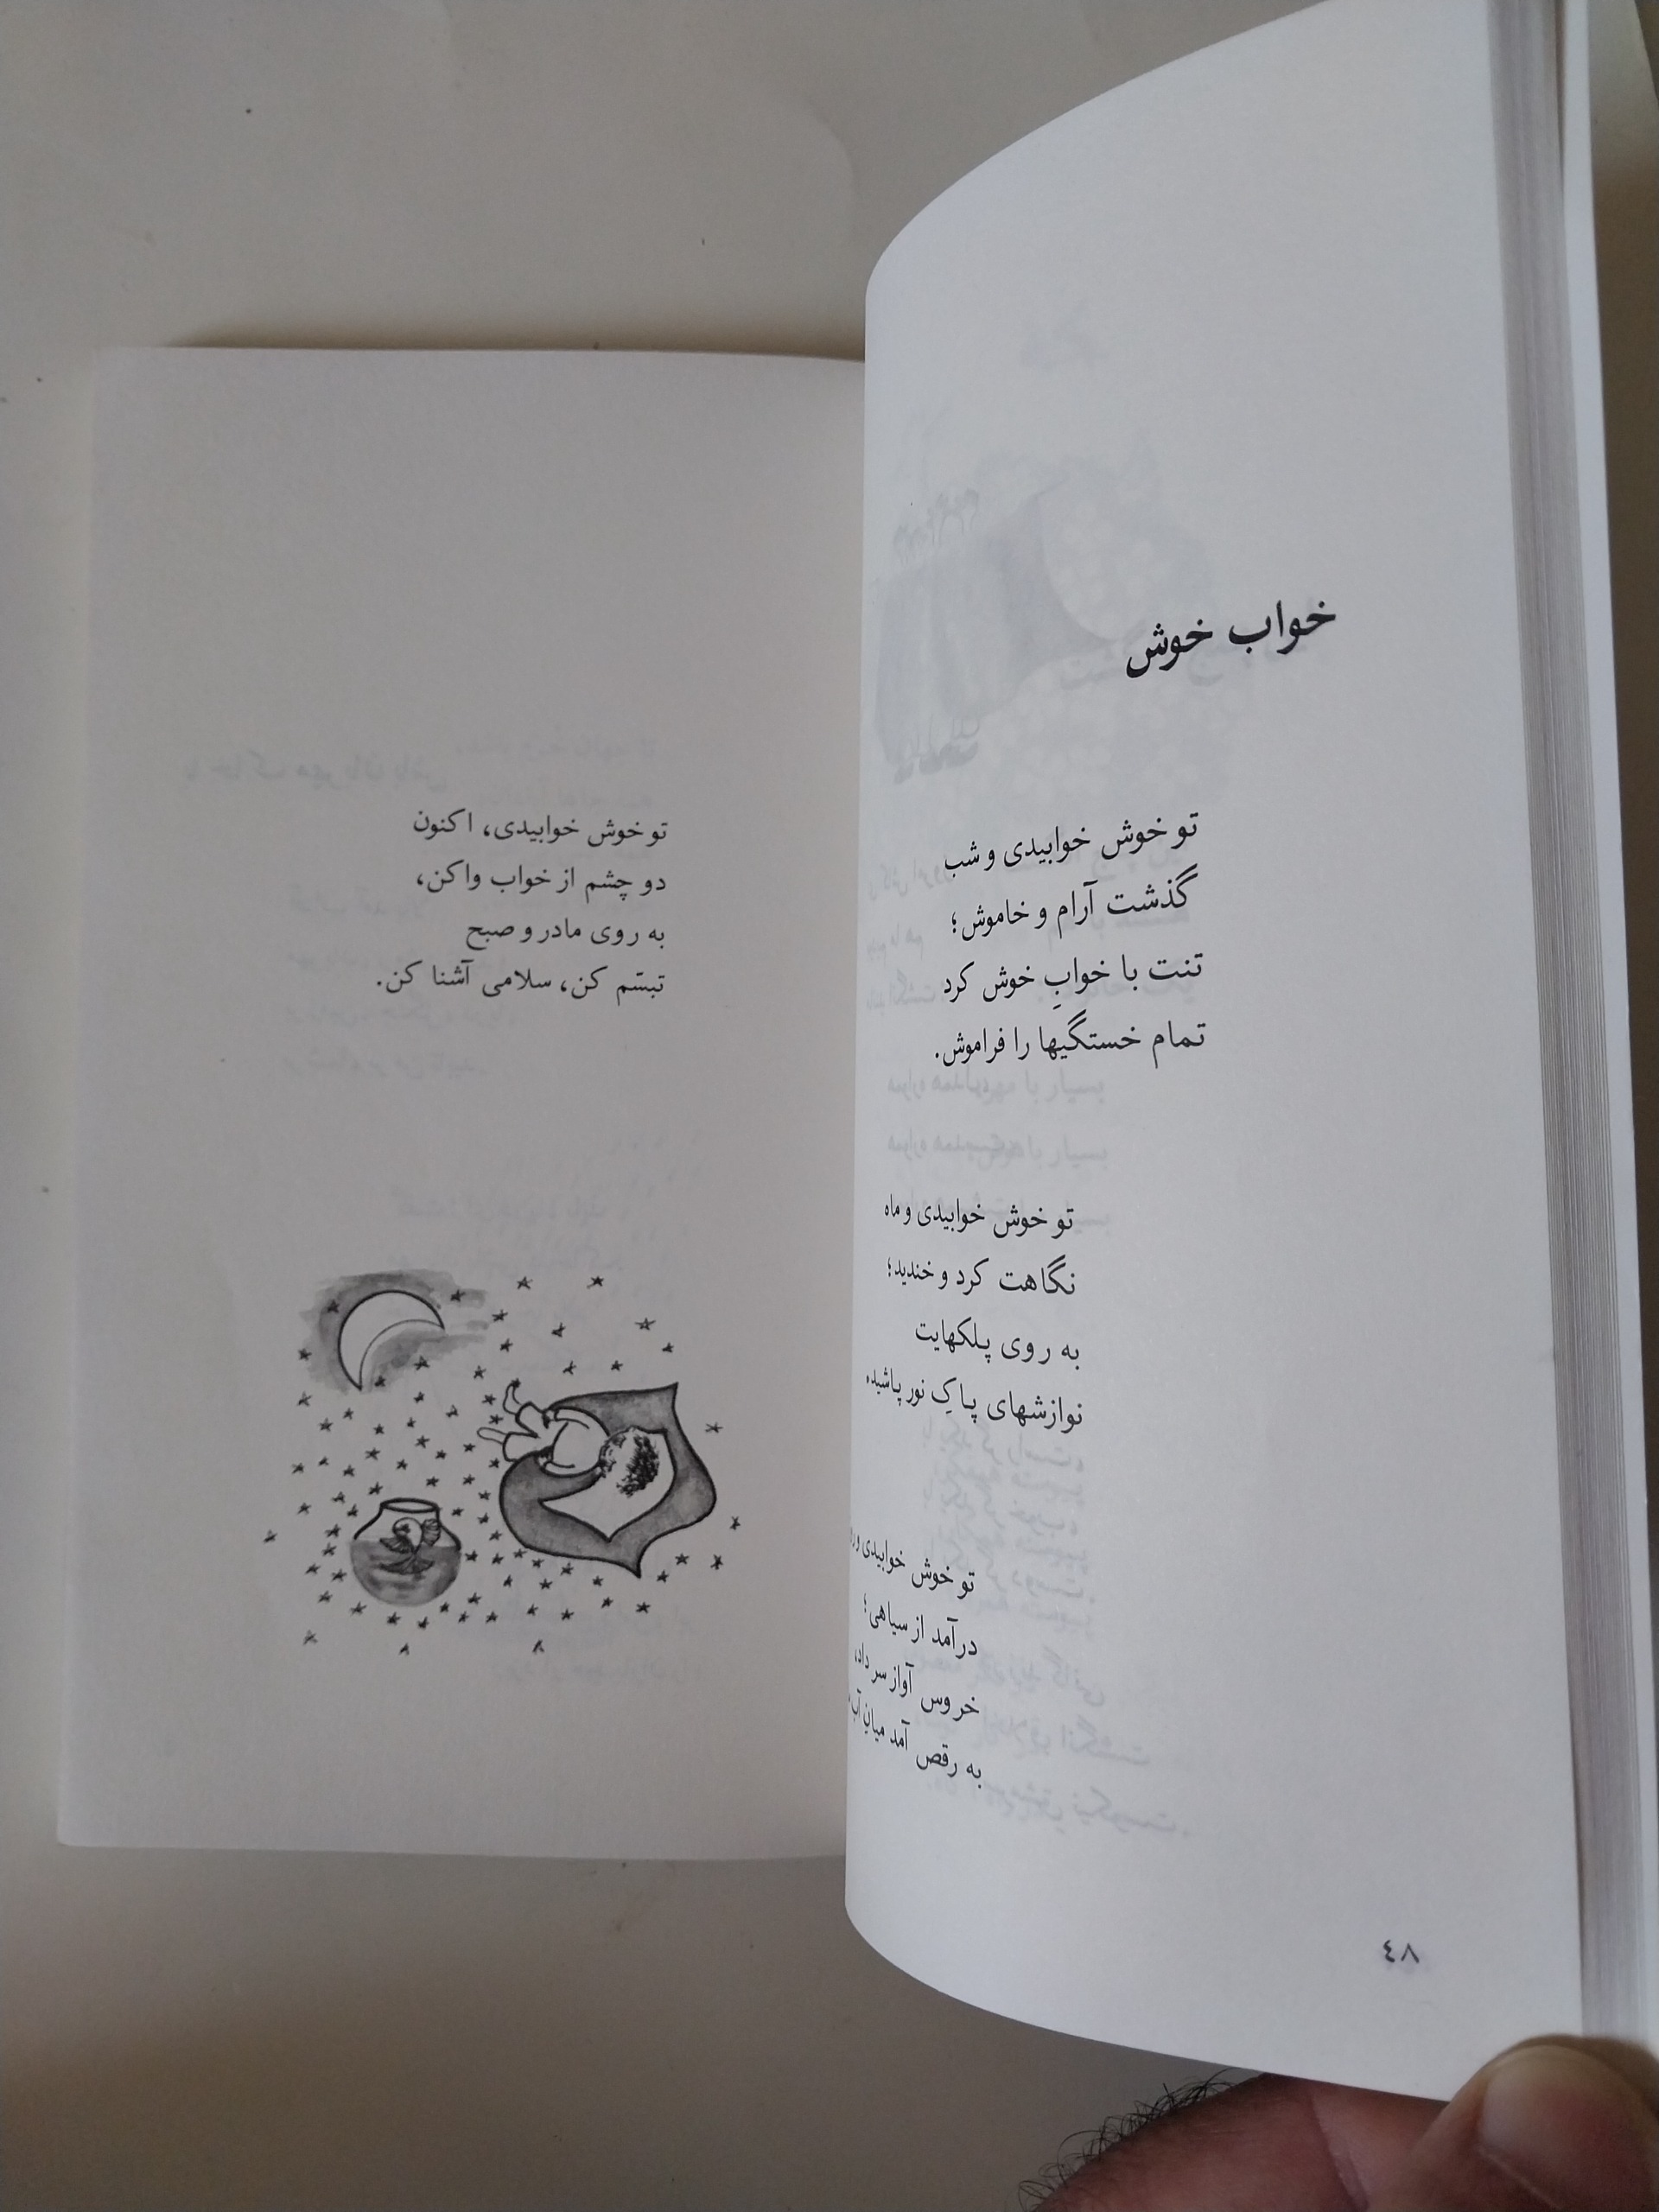 خواب خوش
تو خوش خوابیدی و شب
گذشت آرام و خاموش؛
تنت با خوابِ خوش کرد
تمام خستگیها را فراموش.
تو خوش خوابیدی و ماه
نگاهت کرد و خندید؛
به روی پلکهایت
نوازشهای پاکِ نور پاشید
تو خوش خوابیدی و
درآمد از سیاهی؛
خروس آواز سر داد،
به رقص آمد میانِ آب
٤٨
تو خوش خوابیدی، اکنون
دو چشم از خواب واکن،
به روی مادر و صبح
تبسّم کن، سلامی آشنا کن.